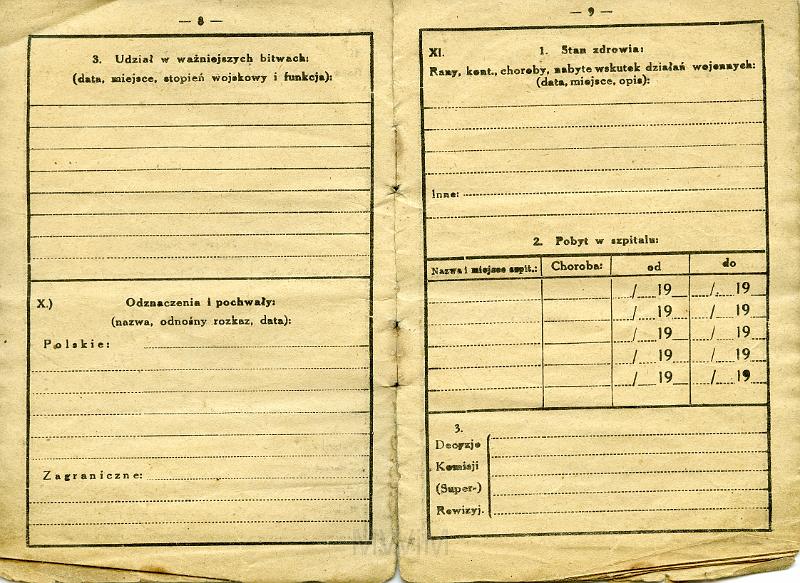 — 8 —
3. Udział w ważniejszych bitwach:
(data, miejsce, stopień wojskowy i funkcja):
X.) Odznaczenia i pochwały:
(nazwa, odnośny rozkaz, data):
Polskie:
Zagraniczne:
— 9 —
XI. 1. Stan zdrowia:
Rany, kont., choroby, nabyte wskutek działań wojennych:
(data, miejsce, opis):
Inne:
2. Pobyt w szpitalu:
Nazwa i miejsce szpit.: Choroba: od do
/ 19 / 19
/ 19 / 19
/ 19 / 19
/ 19 / 19
/ 19 / 19
3.
Decyzje
Komisji
(Super-)
Rewizyj.